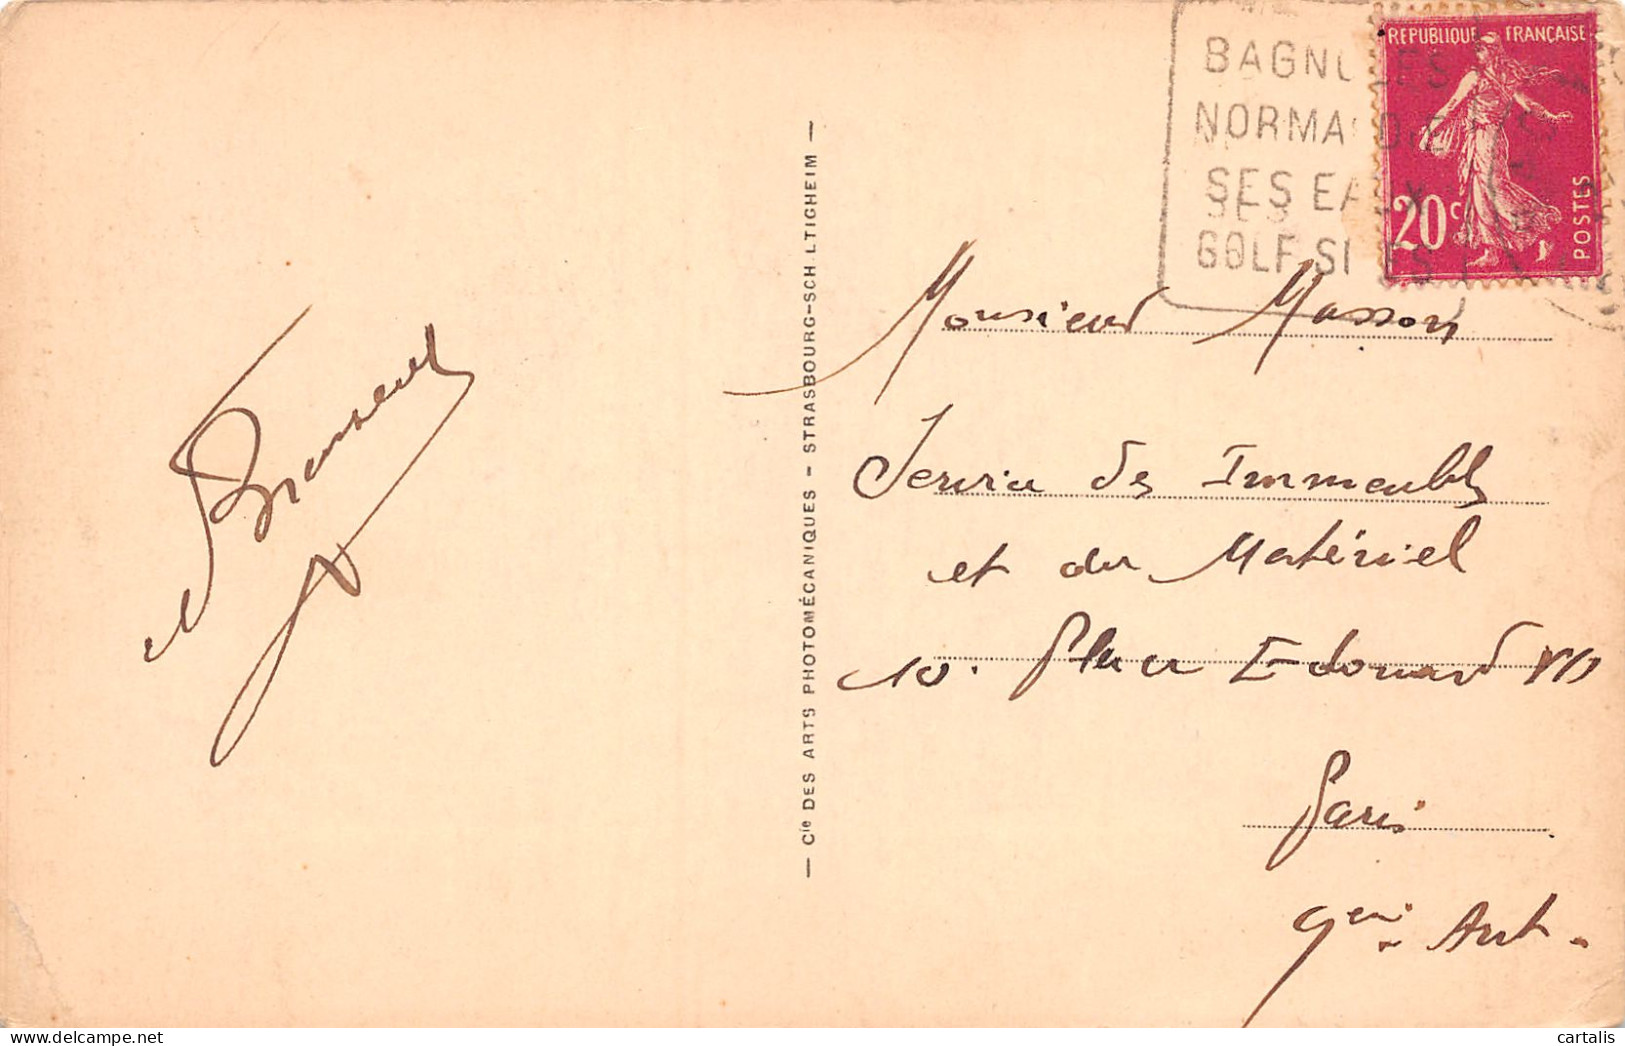 BAGNOLES
NORMANDIE
SES EAUX
GOLF SITES
REPUBLIQUE FRANÇAISE
20c
POSTES
— Cie DES ARTS PHOTOMÉCANIQUES – STRASBOURG-SCHILTIGHEIM —
Monsieur Masson
Service des Immeubles
et du Matériel
10. Place Edouard VII
Paris
9em Art.
cartalis